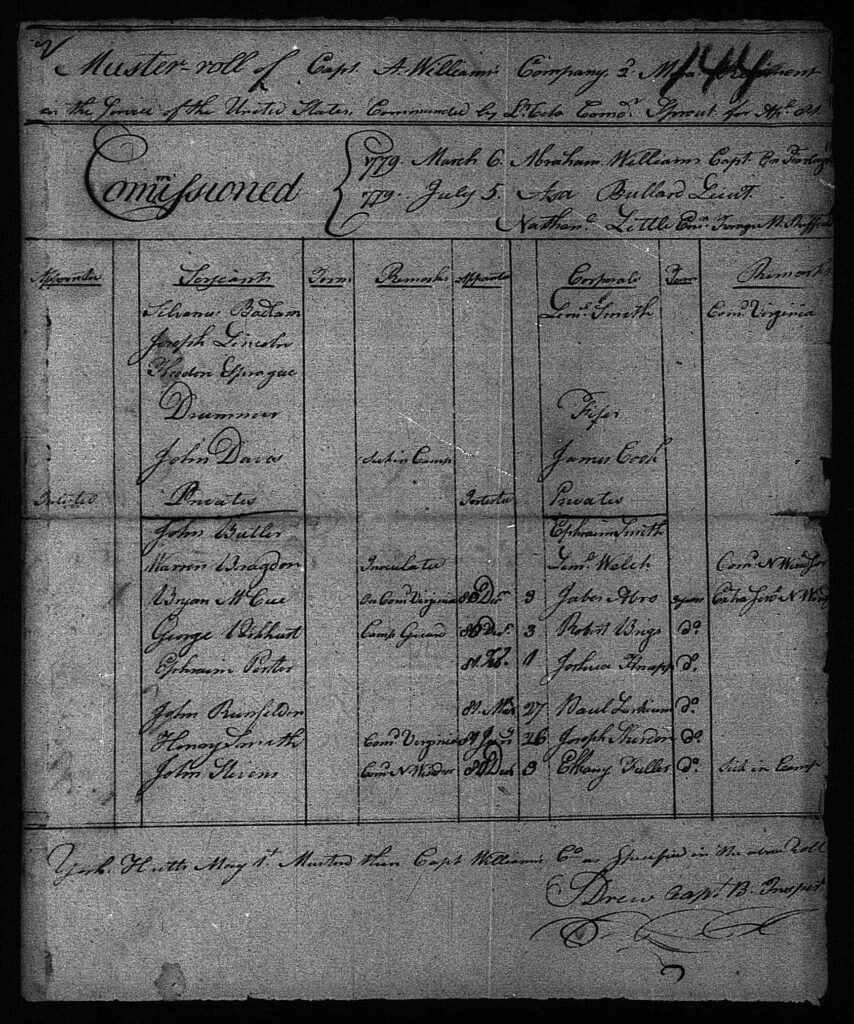 Muster-roll of Capt. A. Williams Company 2. Mass Regiment 144
in the Service of the United States, Commanded by Lt. Colo Comdt Sprout for Apl 81
Comissioned
1779. March 6. Abraham Williams Capt. On Furlough
1779. July 5. Asa Bullard Lieut.
Nathanl. Little
Appointed Serjeants Term Remarks Appointed Corporals Term Remarks
Silvanus Badlam Leml. Smith Comd. Virginia
Joseph Lincoln
Sprague
Drummer Fifer
John Davis Sick in Camp James Cook
Inlisted Privates Inlisted Privates
John Butler Ephraim Smith
Warren Bragdon Inoculated Leml. Welch Comd. N Windsor
Bryan McCue On Comd. Virginia 80 Der. 3 Jabez 3 years Extra Serv. N Winds
George Camp Guard 80 Der. 3 Robert Brigs do.
Ephraim Porter 81. Feb. 1 Joshua Knapp do.
John 81. Mar 27 do.
Henry Smith Comd. Virginia 81 Jany. 26 Joseph do.
John Stevens Comd. N Windsor 80 Decr 3 Fuller do. Sick in Camp
York Hutts May 1st. Muster'd then Capt Williams Co as Specified in the above Roll
S Drew Capt. B. Inspect